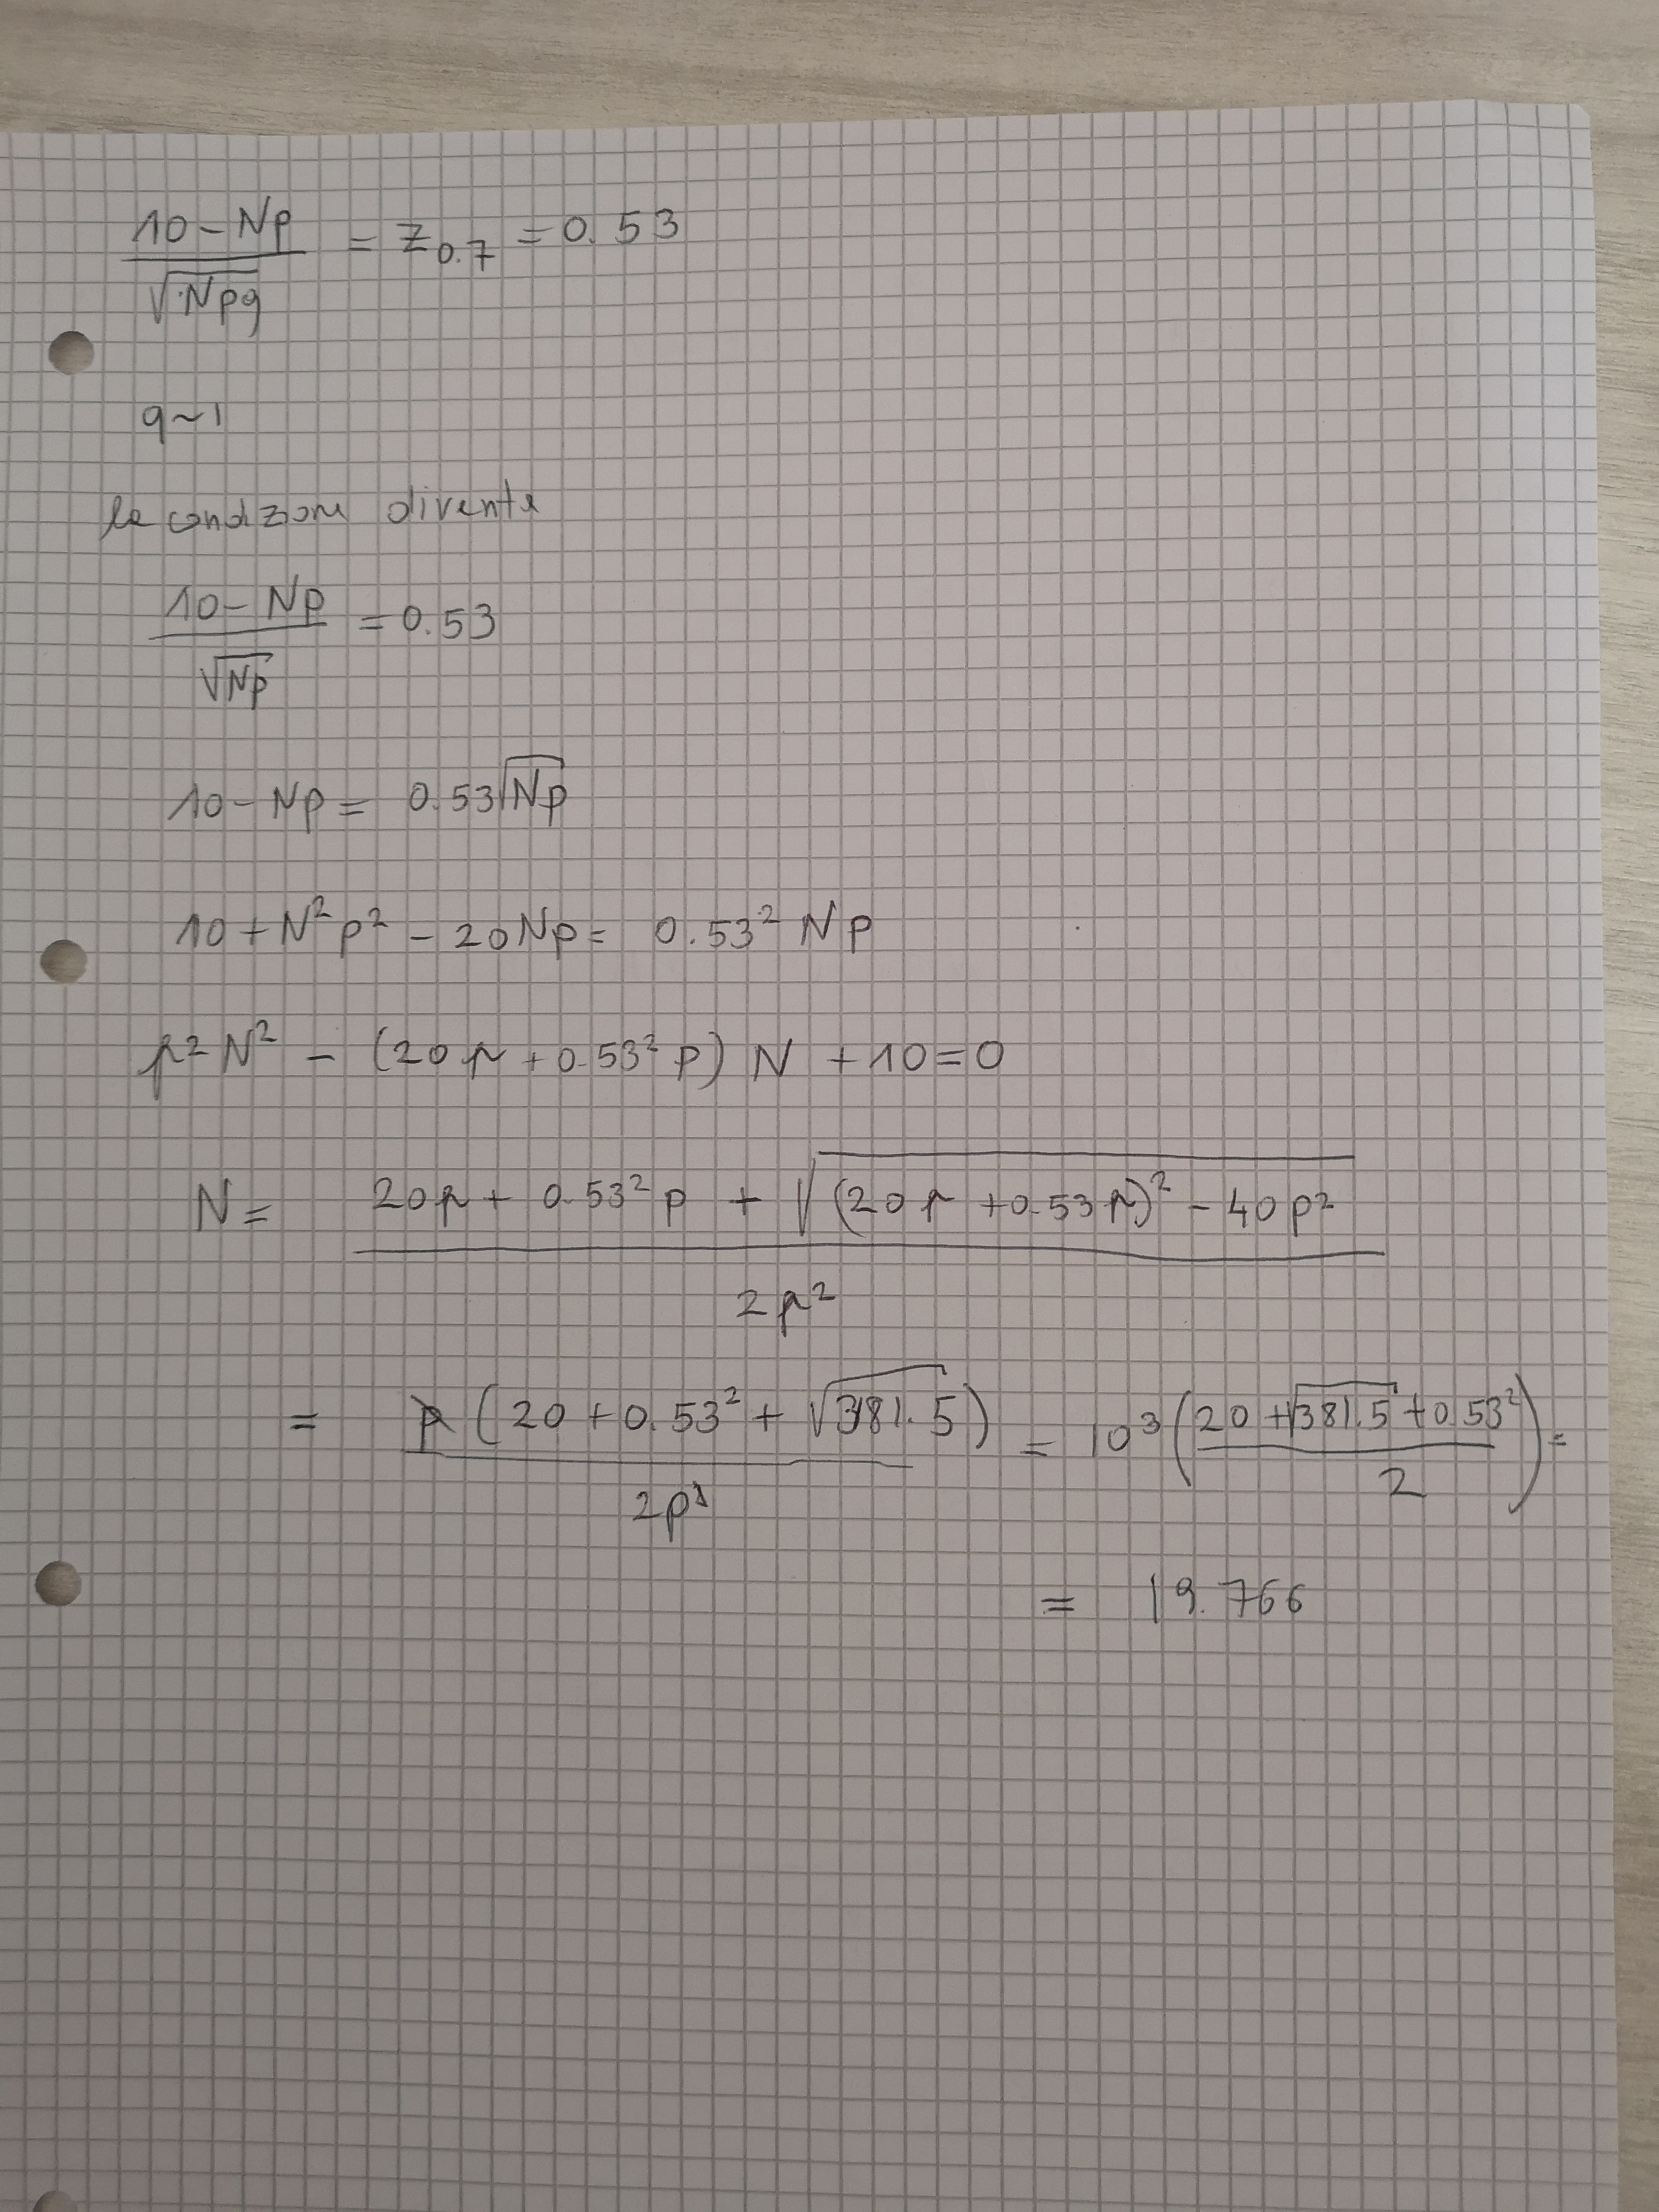 10 - Np / √Npq = z_0.7 = 0.53
q ~ 1
la condizione diventa
10 - Np / √Np = 0.53
10 - Np = 0.53 √Np
10 + N² p² - 20Np = 0.53² Np
p² N² - (20p + 0.53² p) N + 10 = 0
N = 20p + 0.53² p + √(20p + 0.53p)² - 40p² / 2p²
= p (20 + 0.53² + √381.5) / 2p² = 10³ (20 + √381.5 + 0.53² / 2) =
= 19.766